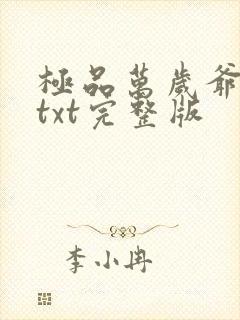 極品萬歲爺
txt完整版
李小冉